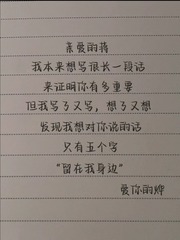 亲爱的蒋
我本来想写很长一段话
来证明你有多重要
但我写了又写，想了又想
发现我想对你说的话
只有五个字
“留在我身边”
爱你的婵